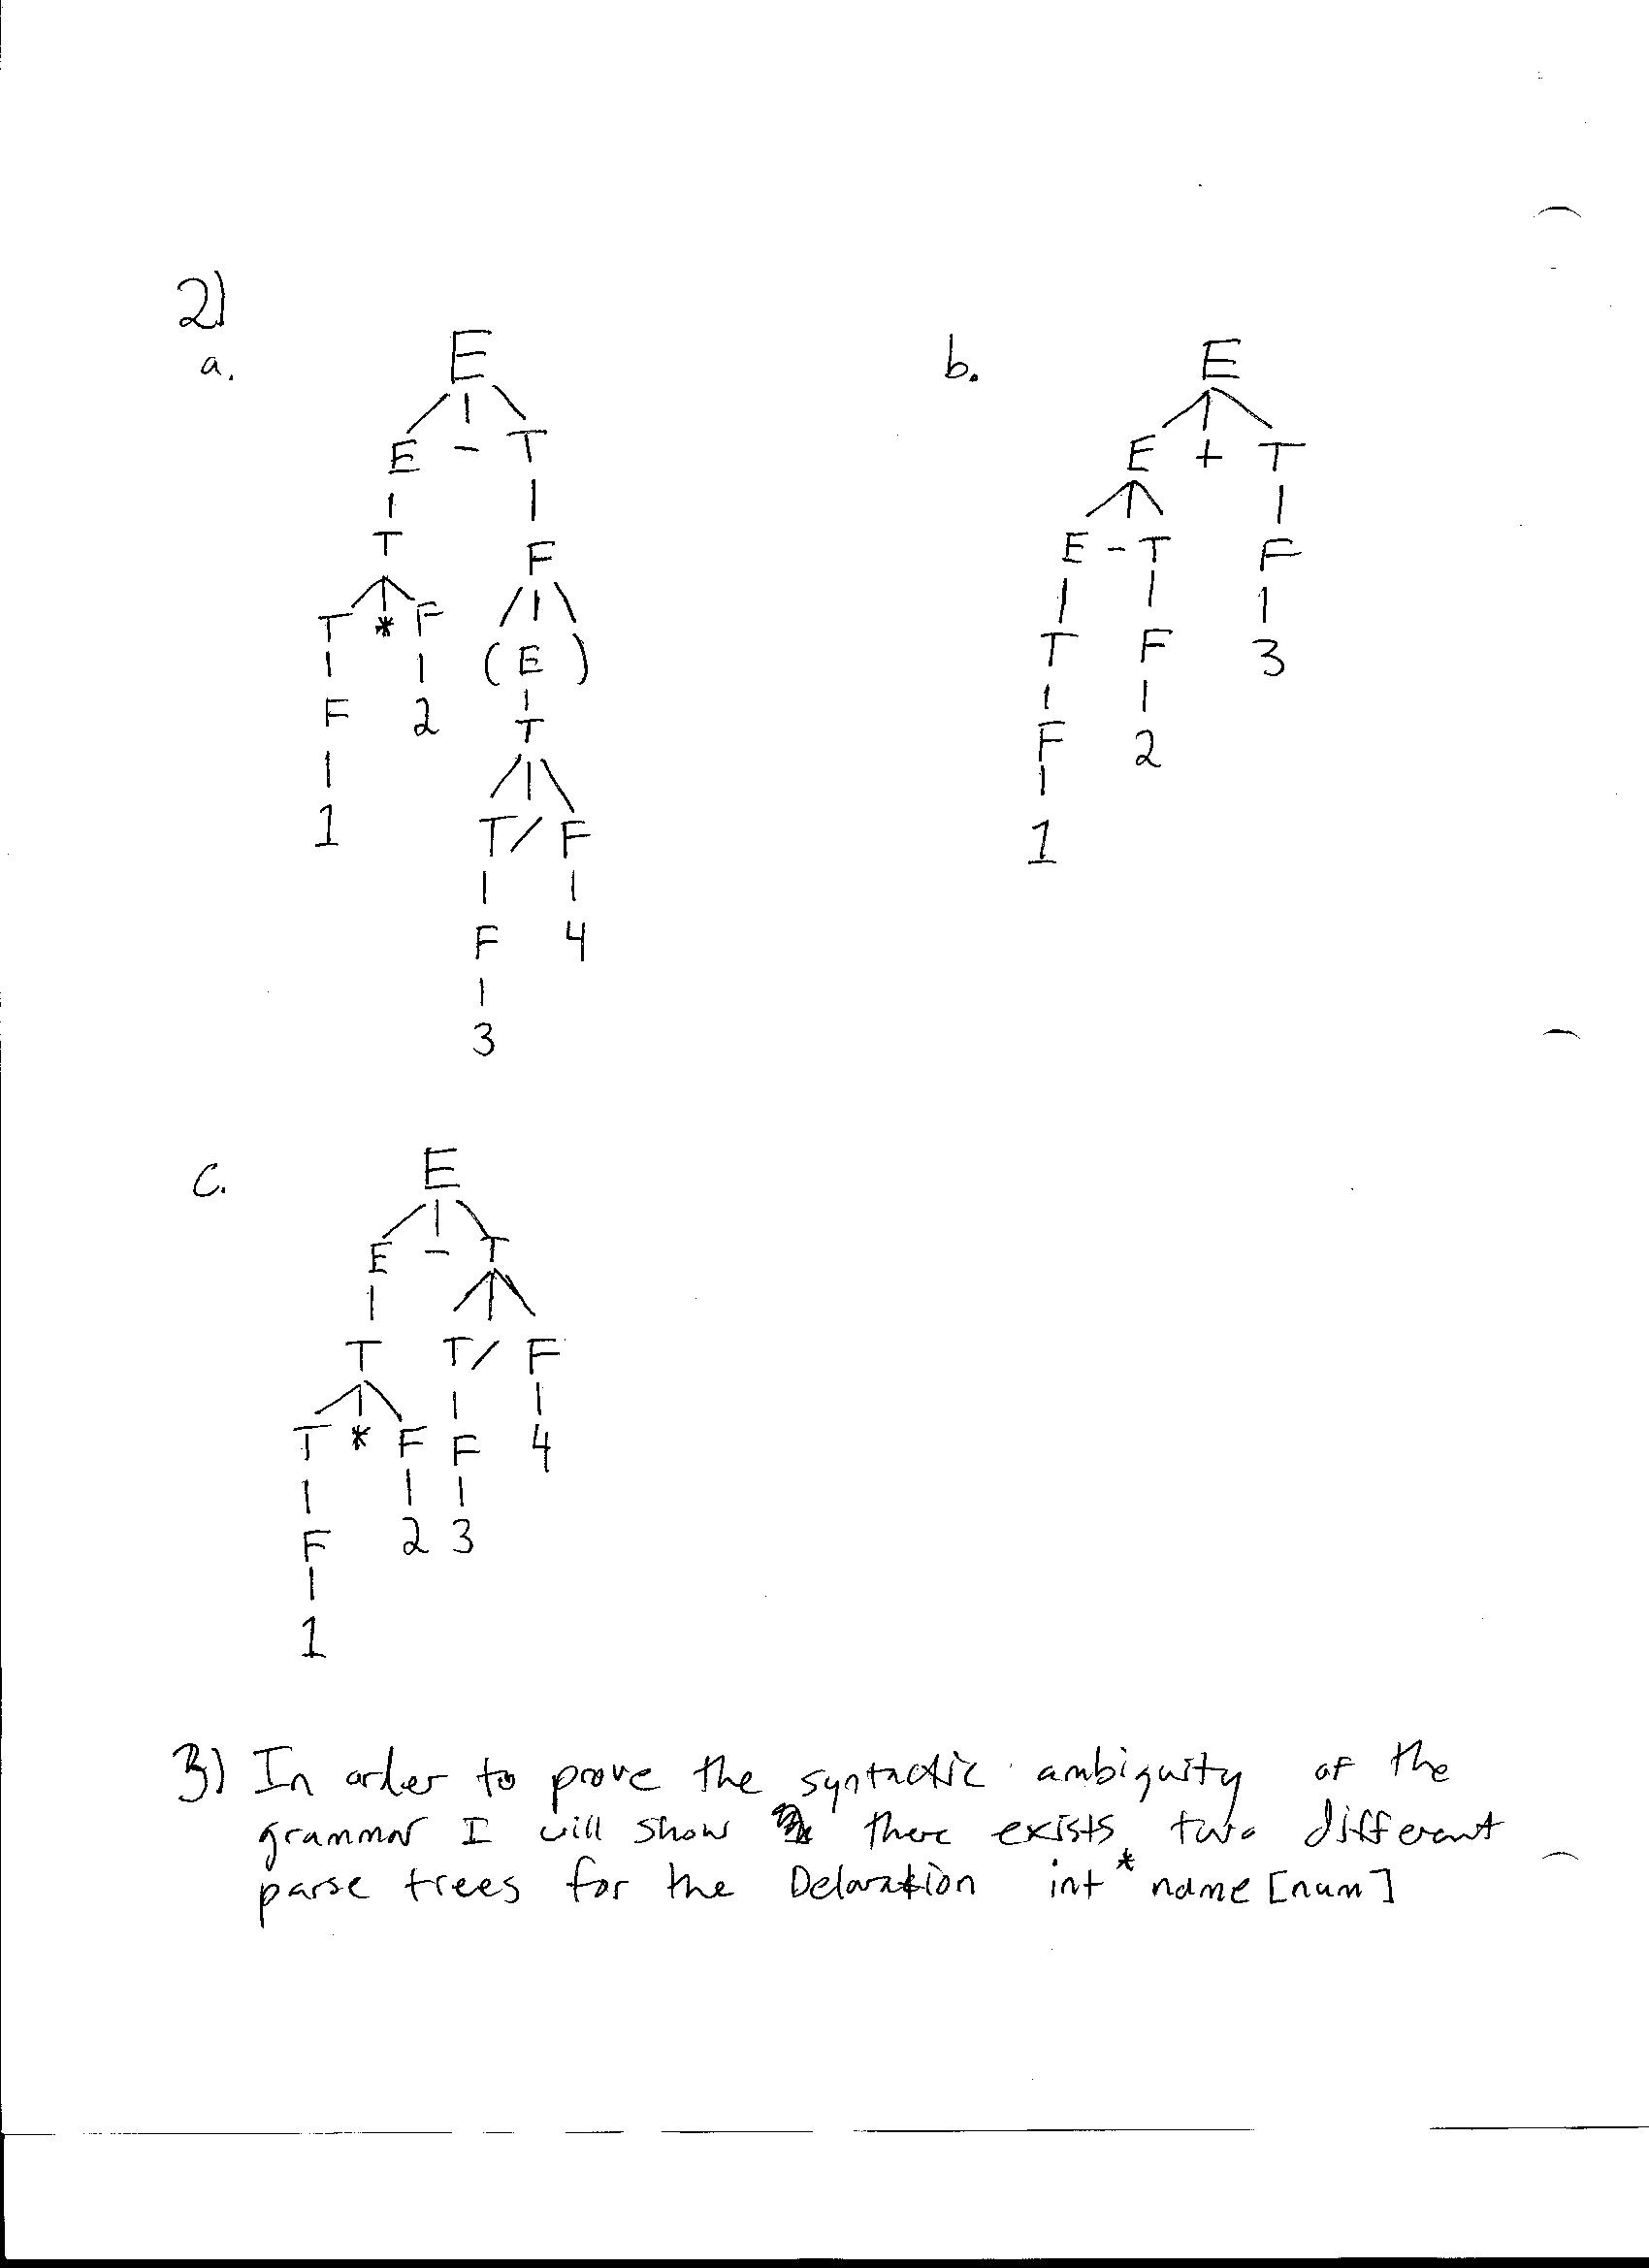 2)
a.
E
E - T
T
F
T * F
( E )
F 2
T
1
T / F
F 4
3
b.
E
E + T
E - T F
T F 3
F 2
1
c.
E
E - T
T T / F
T * F F 4
F 2 3
1
3) In order to prove the syntactic ambiguity of the
grammar I will show there exists two different
parse trees for the Delaration int * name [num]